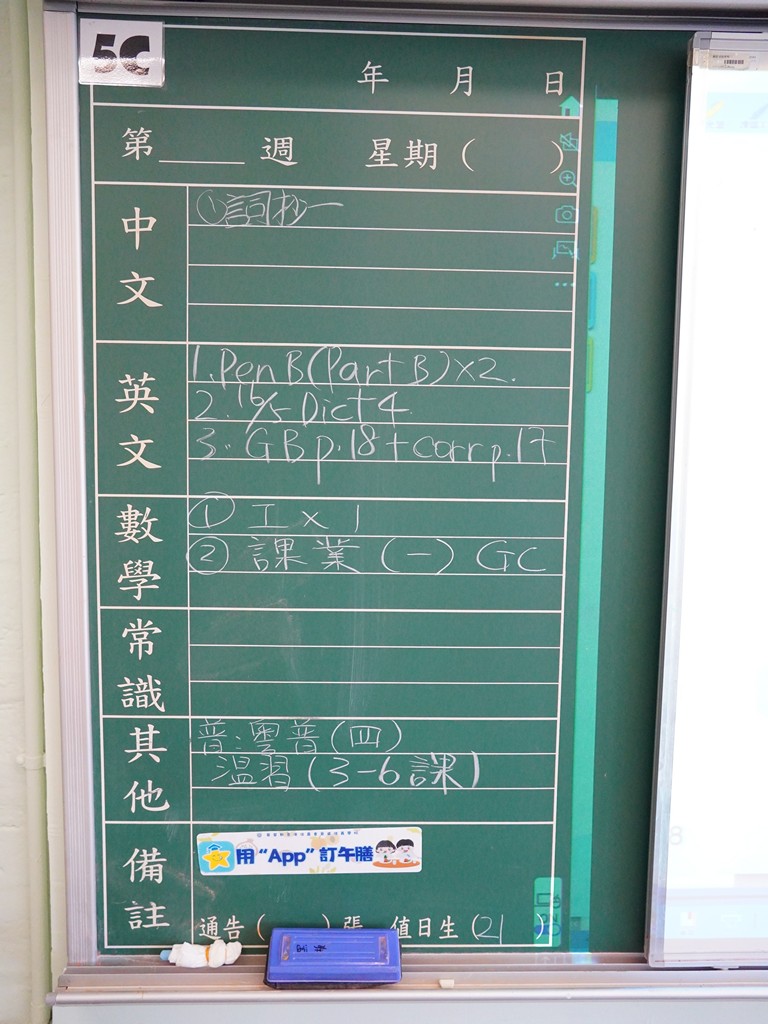 5C
年 月 日
第 週 星期( )
中文
①詞抄一
英文
1. Pen B (Part B) x2.
2. 16/5 Dict 4
3. GB p.18 + corr p.17
數學
① 工 x 1
② 課業 (一) GC
常識
其他
普:粵普(四)
温習(3-6課)
備註
用“App”訂午膳
通告( )張 值日生(21 )